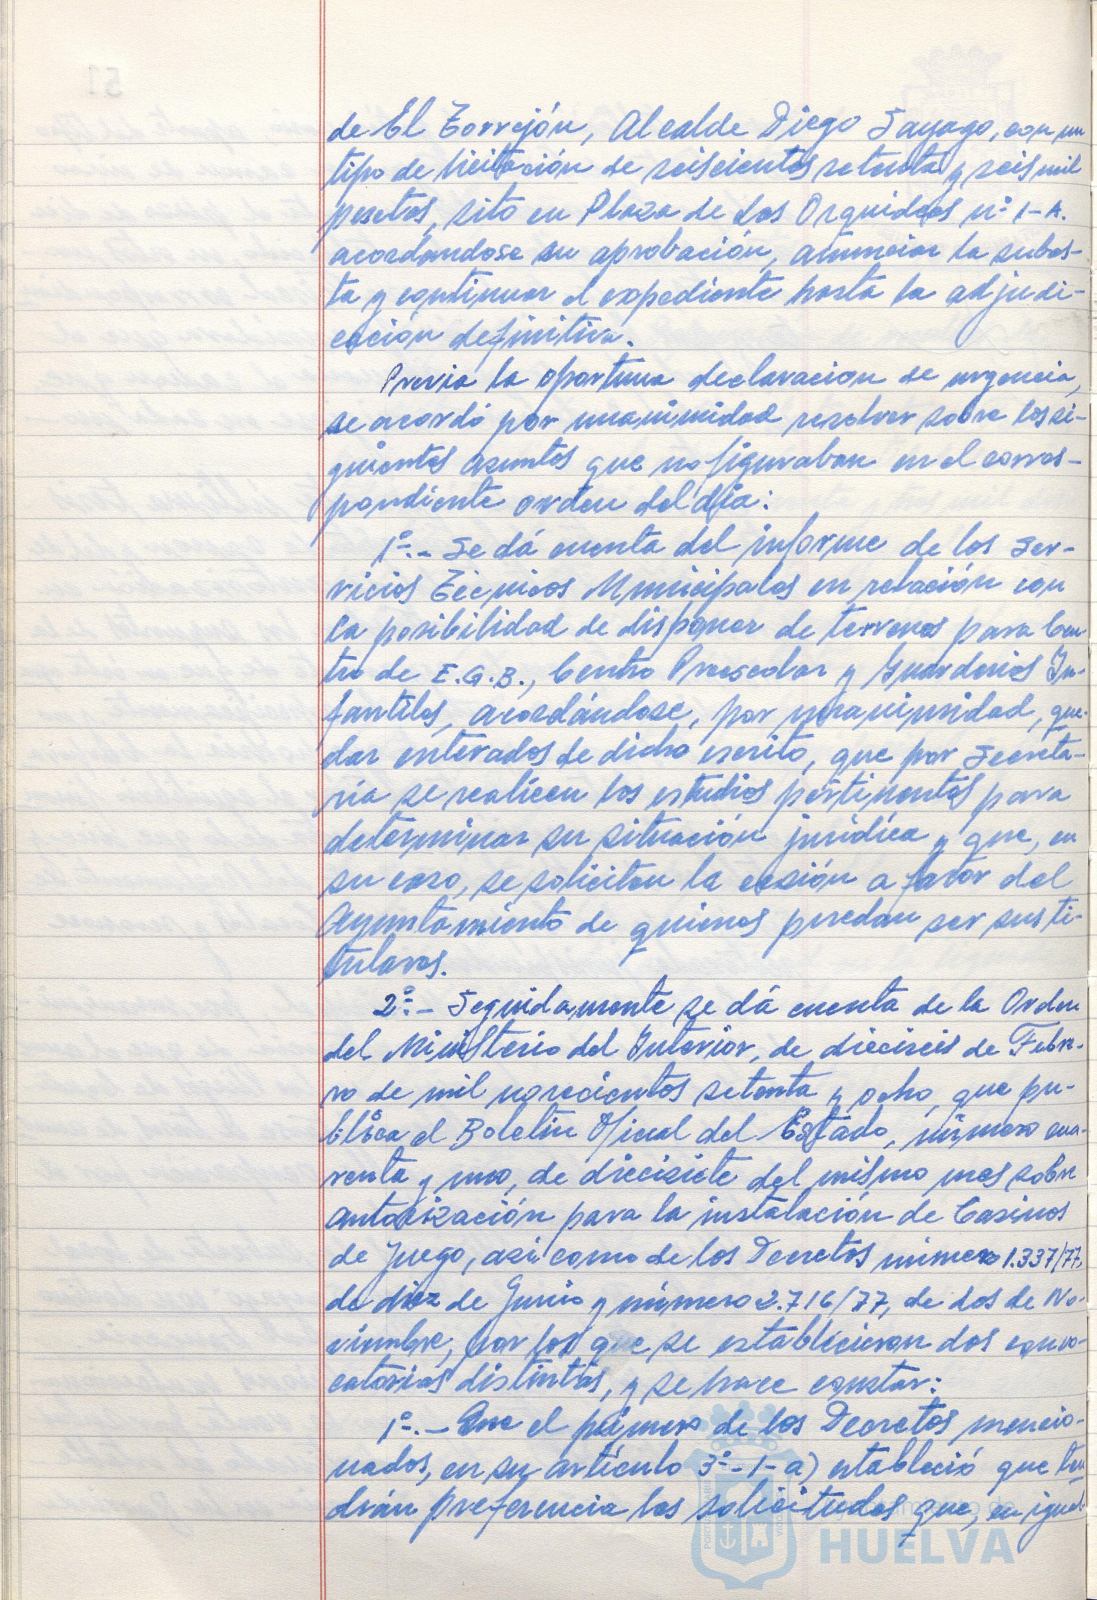 de El Torrejón, Alcalde Diego Sayago, con un
tipo de licitación de seiscientas setenta y seis mil
pesetas, sito en Plaza de las Orquídeas nº 1-A.
acordándose su aprobación, anunciar la subas-
ta y continuar el expediente hasta la adjudi-
cación definitiva.
Previa la oportuna declaración de urgencia,
se acordó por unanimidad resolver sobre los si-
guientes asuntos que no figuraban en el corres-
pondiente orden del día:
1º.- Se dá cuenta del informe de los Ser-
vicios Técnicos Municipales en relación con
la posibilidad de disponer de terrenos para Cen-
tro de E.G.B., Centro Preescolar y Guarderías In-
fantiles, acordándose, por unanimidad, que-
dar enterados de dicho escrito, que por Secreta-
ría se realicen los estudios pertinentes para
determinar su situación jurídica y que, en
su caso, se soliciten la cesión a favor del
Ayuntamiento de quienes puedan ser sus ti-
tulares.
2º.- Seguidamente se dá cuenta de la Orden
del Ministerio del Interior, de dieciseis de Febre-
ro de mil novecientos setenta y ocho, que pu-
blica el Boletín Oficial del Estado, número cua-
renta y uno, de diecisiete del mismo mes sobre
autorización para la instalación de Casinos
de Juego, así como de los Decretos número 1.337/77,
de diez de Junio y número 2.716/77, de dos de No-
viembre, por los que se establecieron dos convo-
catorias distintas, y se hace constar:
1º.- Que el primero de los Decretos mencio-
nados, en su artículo 3º-1-a) estableció que ten
drán preferencia las solicitudes que, en igual
HUELVA